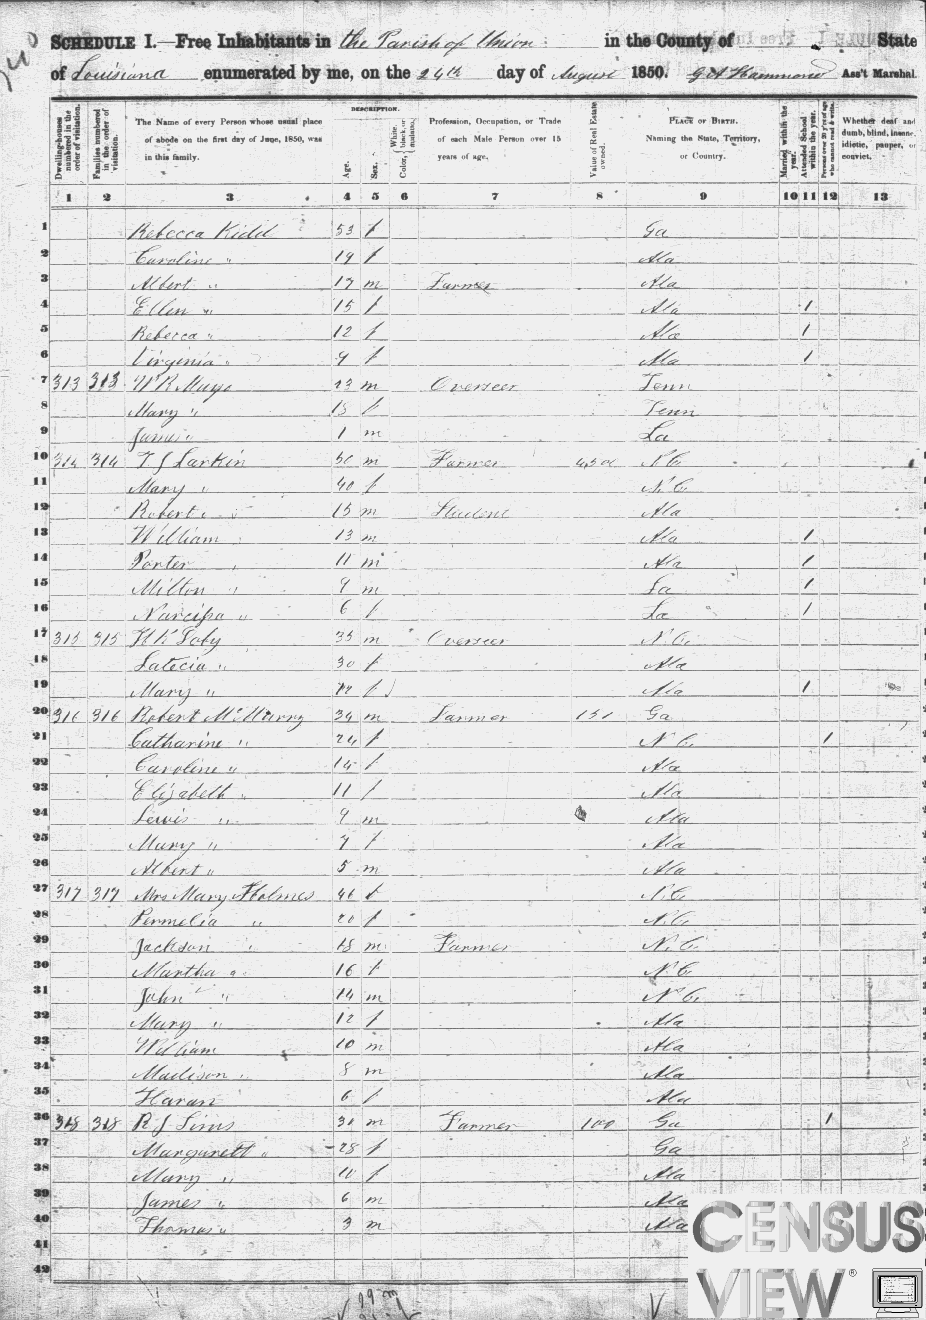 SCHEDULE I.—Free Inhabitants in the Parish of Union in the County of State
of Louisiana enumerated by me, on the 24th day of August 1850. Ass't Marshal.
DESCRIPTION.
Dwelling-houses numbered in the order of visitation.
Families numbered in the order of visitation.
The Name of every Person whose usual place of abode on the first day of June, 1850, was in this family.
Age.
Sex.
Color, White, black, or mulatto.
Profession, Occupation, or Trade of each Male Person over 15 years of age.
Value of Real Estate owned.
PLACE OF BIRTH. Naming the State, Territory, or Country.
Married within the year.
Attended School within the year.
Persons over 20 y'rs of age who cannot read & write.
Whether deaf and dumb, blind, insane, idiotic, pauper, or convict.
1 2 3 4 5 6 7 8 9 10 11 12 13
1 Rebecca Kidd 53 f Ga
2 Caroline " 19 f Ala
3 Albert " 17 m Farmer Ala
4 Ellen " 15 f Ala 1
5 Rebecca " 12 f Ala 1
6 Virginia " 9 f Ala 1
7 313 313 W R Mayo m Overseer Tenn
8 Mary " f Tenn
9 James " 1 m La
10 314 314 T J Larkin 50 m Farmer N C
11 Mary " 40 f N.C.
12 Robert " 15 m Student Ala
13 William " 13 m Ala 1
14 Porter " 11 m Ala 1
15 Milton " 9 m La 1
16 Narcissa " 6 f La 1
17 315 315 35 m Overseer N C.
18 Latecia " 30 f Ala
19 Mary " 12 f Ala 1
20 316 316 Robert McMurry 39 m Farmer Ga
21 Catharine " 24 f N C. 1
22 Caroline " 14 f Ala
23 Elizabeth " 11 f Ala
24 Lewis " 9 m Ala
25 Mary " 7 f Ala
26 Albert " 5 m Ala
27 317 317 Mrs Mary Holmes 46 f N.C.
28 Permelia " 20 f N.C.
29 Jackson " 18 m Farmer N.C.
30 Martha " 16 f N C
31 John " 14 m N C.
32 Mary " 12 f Ala
33 William 10 m Ala
34 Madison " 8 m Ala
35 6 f Ala
36 318 318 R J Sims 30 m Farmer 100 Ga 1
37 Margarett " 28 f Ga
38 Mary " 10 f Ala
39 James " 6 m Ala
40 Thomas " 3 m Ala
41
42
CENSUS
VIEW®